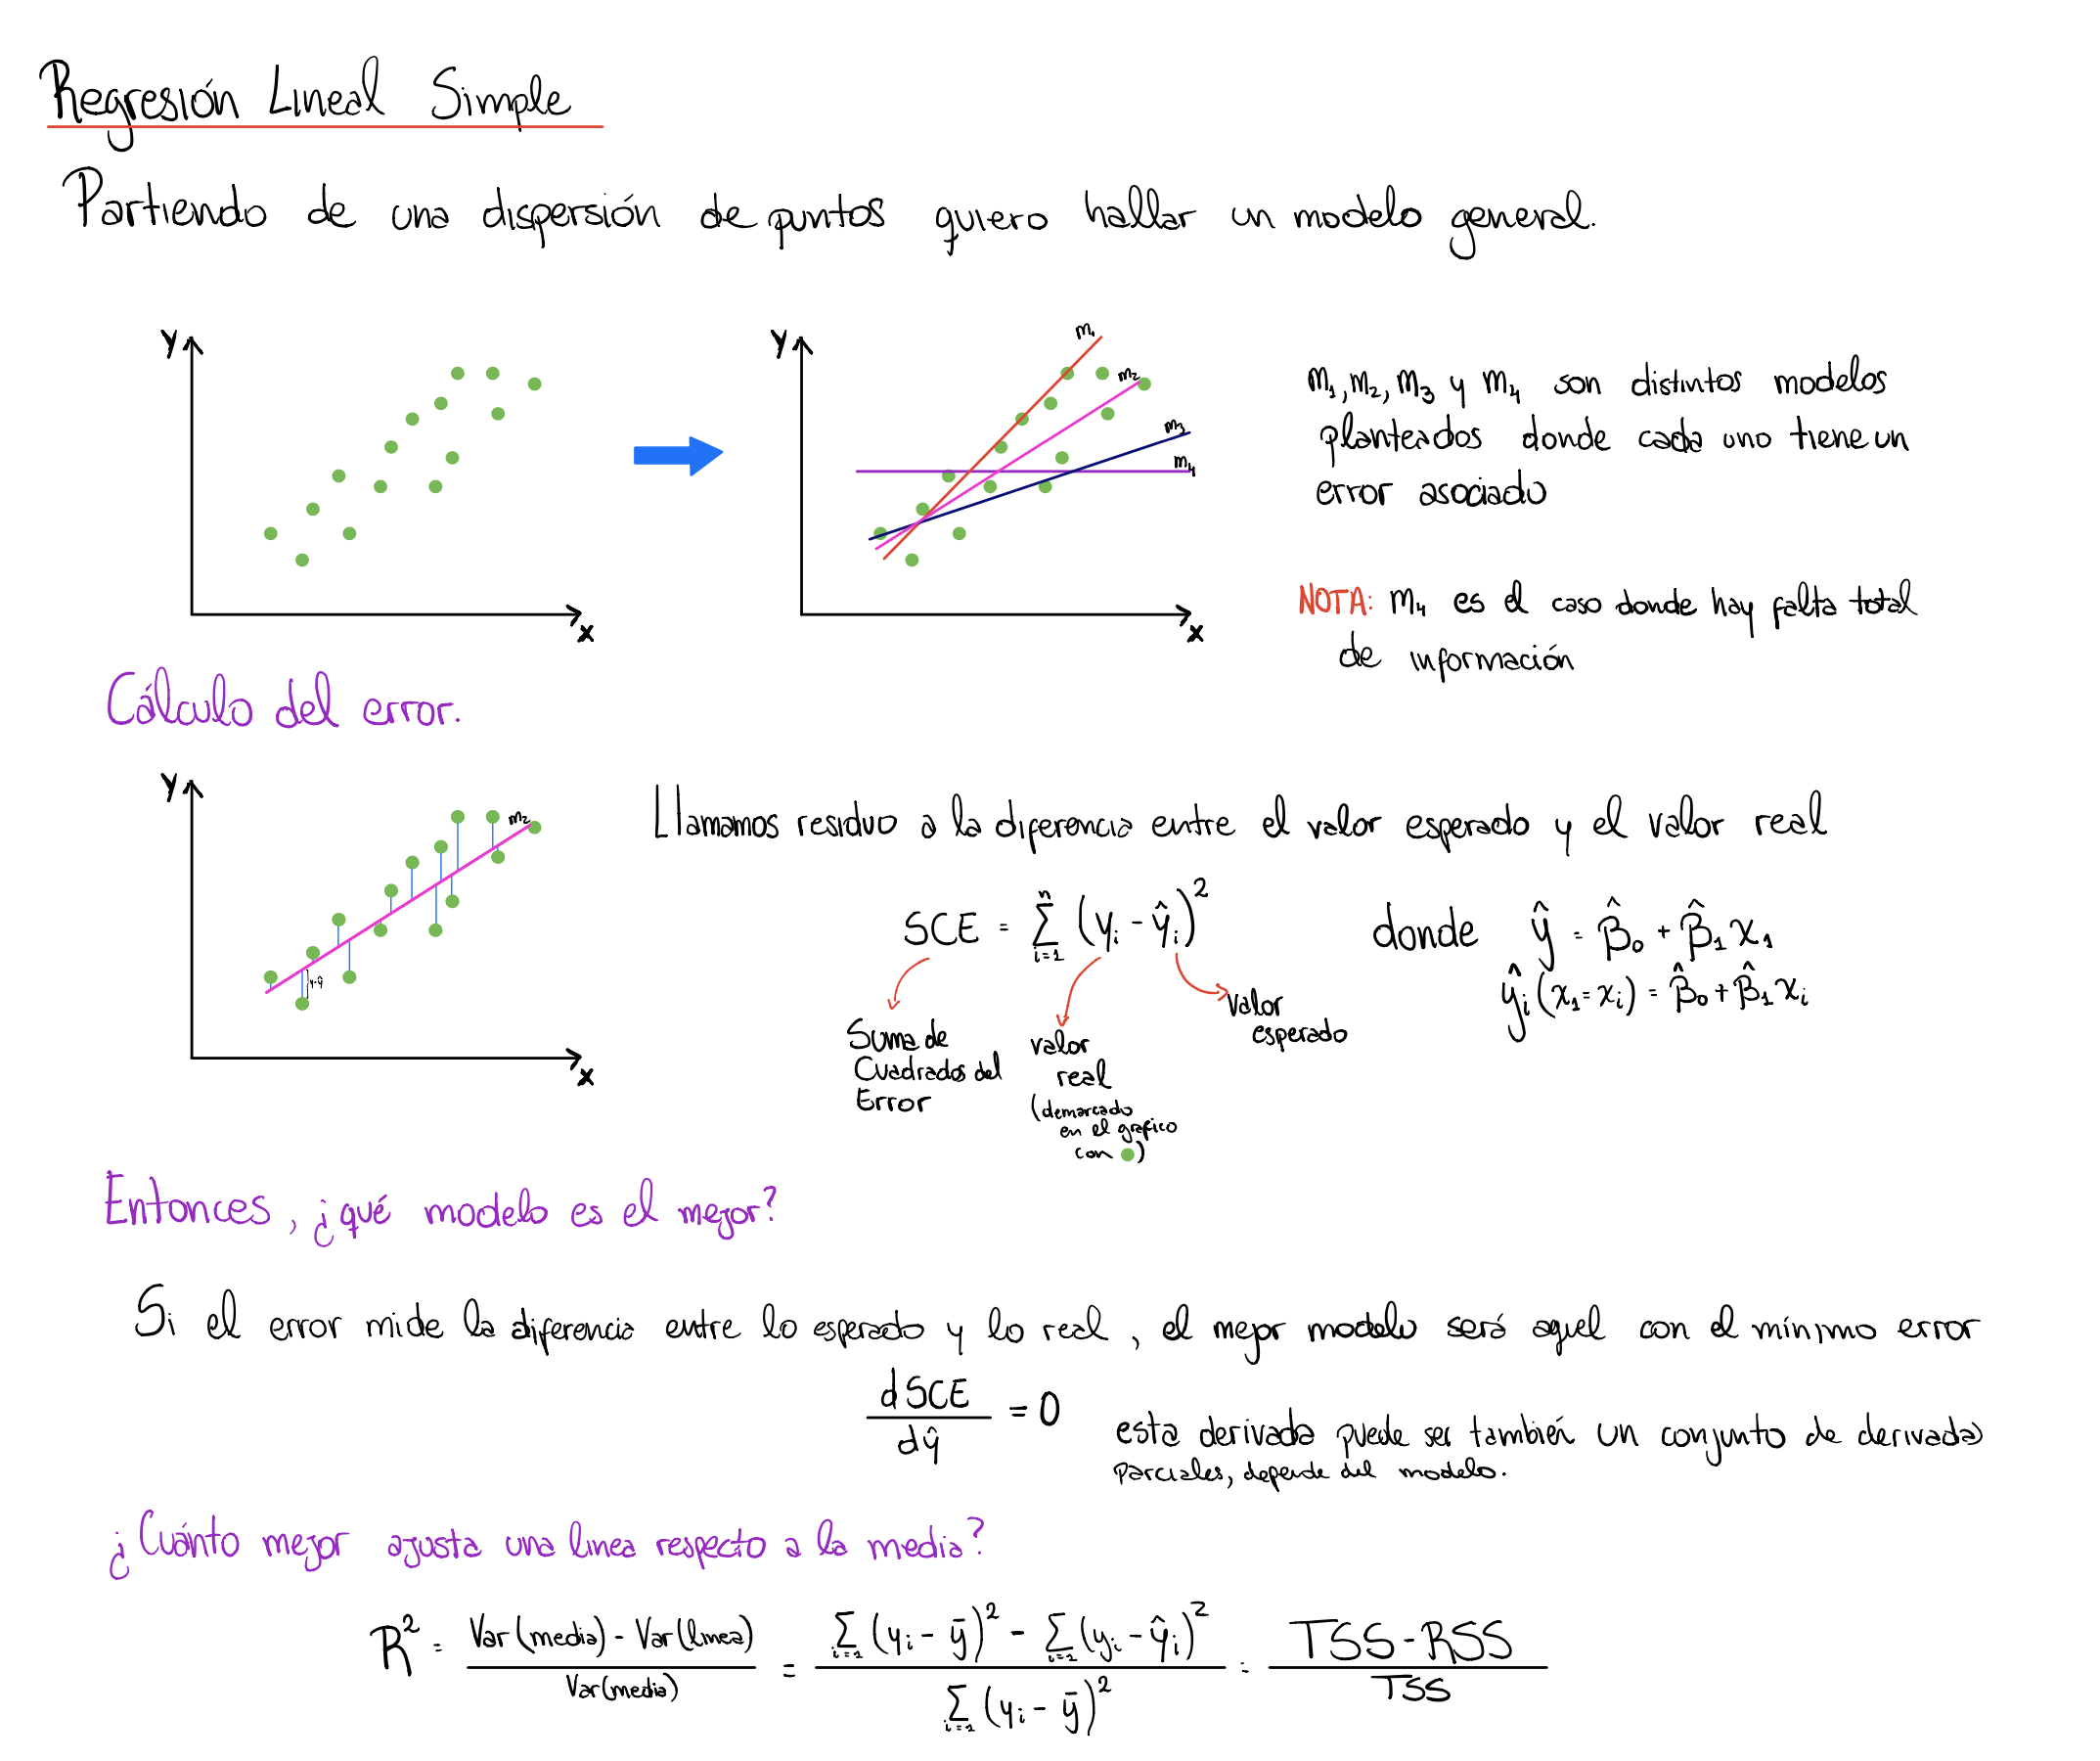 Regresión Lineal Simple
Partiendo de una dispersión de puntos quiero hallar un modelo general.
y
x
y
m₁
m₂
m₃
m₄
x
m₁, m₂, m₃ y m₄ son distintos modelos
planteados donde cada uno tiene un
error asociado
NOTA: m₄ es el caso donde hay falta total
de información
Cálculo del error.
y
m₂
y-ŷ
x
Llamamos residuo a la diferencia entre el valor esperado y el valor real
SCE = Σᵢ₌₁ⁿ (yᵢ - ŷᵢ)²
donde ŷ = β̂₀ + β̂₁ x₁
ŷᵢ (x₁ = xᵢ) = β̂₀ + β̂₁ xᵢ
Suma de
Cuadrados del
Error
valor
real
(demarcado
en el grafico
con )
valor
esperado
Entonces, ¿qué modelo es el mejor?
Si el error mide la diferencia entre lo esperado y lo real, el mejor modelo será aquel con el mínimo error
dSCE / dŷ = 0
esta derivada puede ser también un conjunto de derivadas
parciales, depende del modelo.
¿Cuánto mejor ajusta una linea respecto a la media?
R² = (Var(media) - Var(linea)) / Var(media) = (Σᵢ₌₁ (yᵢ - ȳ)² - Σᵢ₌₁ (yᵢ - ŷᵢ)²) / Σᵢ₌₁ (yᵢ - ȳ)² = (TSS - RSS) / TSS